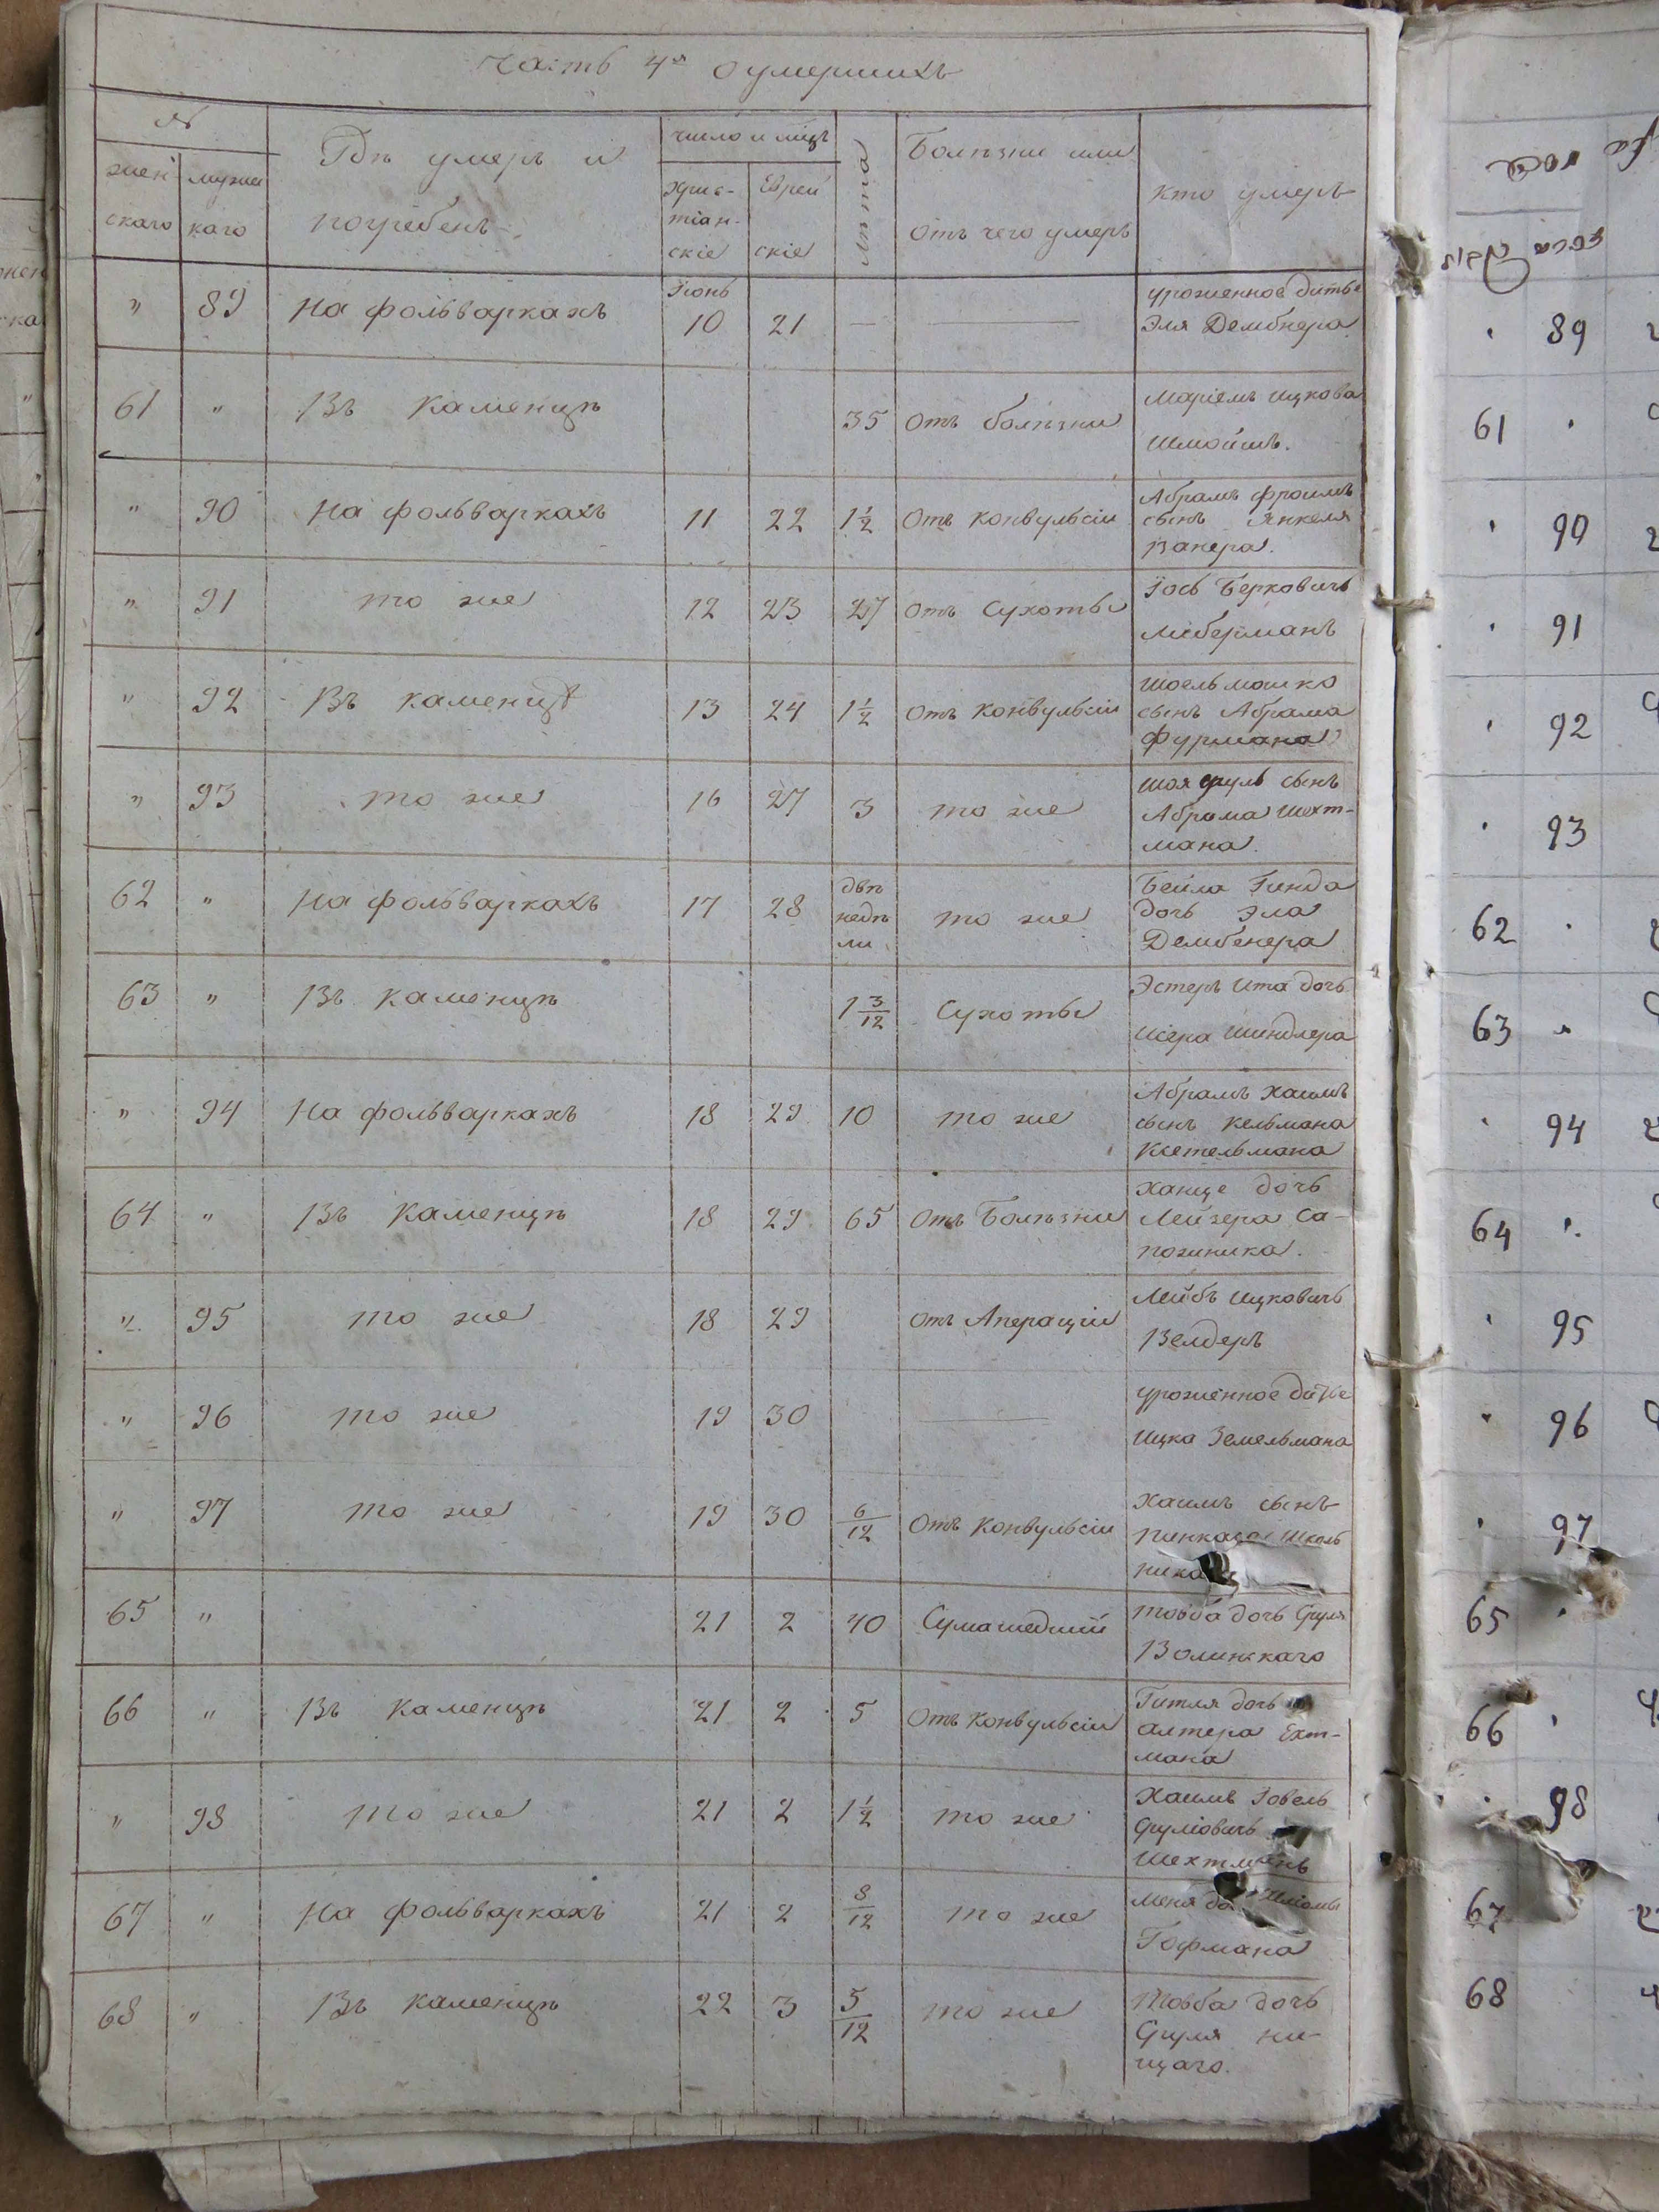 Часть 4я о умершихъ
№
жен
скаго
мужес
каго
Гдѣ умеръ и
погребенъ
число и мѣцъ
Хрис-
тіан-
скіе
Еврей
скіе
Лѣта
Болѣзни или
отъ чего умеръ
кто умеръ
" 89 На фольваркахъ Іюнь 10 21 — —
уроженное дитье
Эля Дембнера
61 " Въ Каменцѣ 35 Отъ болѣзни
Маріемъ Ицкова
Шмойшъ.
" 90 На фольваркахъ 11 22 1 1/2 Отъ конвульсіи
Абрамъ Фроимъ
сынъ Янкеля
Вакера.
" 91 то же 12 23 27 Отъ Сухоты
Іось Берковичъ
Либерманъ
" 92 Въ каменцѣ 13 24 1 1/2 Отъ конвульсіи
Шоель мошко
сынъ Абрама
Фурмана
" 93 то же 16 27 3 то же
Шоя Сруль сынъ
Абрама Шехт-
мана.
62 " На фольваркахъ 17 28 двѣ
недѣ
ли
то же
Бейла Гинда
дочь Эла
Дембенера
63 " Въ Каменцѣ 1 3/12 Сухоты
Эстеръ Ита дочь
Исера Шиндлера
" 94 На фольваркахъ 18 29 10 то же
Абрамъ Хаимъ
сынъ Кельмана
Кетельмана
64 " Въ Каменцѣ 18 29 65 Отъ Болѣзни
Ханце дочь
Лейзера Са-
пожника.
" 95 то же 18 29 Отъ Апераціи
Лейбъ Ицковичъ
Велдеръ
" 96 то же 19 30 —
уроженное дитье
Ицка Земельмана
" 97 то же 19 30 6/12 Отъ Конвульсіи
Хаимъ сынъ
Пинкаса Школь
ника
65 " 21 2 40 Сумашедшій
Товба дочь Сруля
Волинскаго
66 " Въ Каменцѣ 21 2 5 Отъ Конвульсіи
Гитля дочь
Алтера Ехт-
мана
" 98 то же 21 2 1 1/2 то же
Хаимъ Іовель
Сруліовичъ
Шехтманъ
67 " На фольваркахъ 21 2 8/12 то же
Меня Шліомы
Гофмана
68 " Въ каменцѣ 22 3 5/12 то же
Товба дочь
Сруля ни-
щаго.
89
61
90
91
92
93
62
63
94
64
95
96
97
65
66
98
67
68